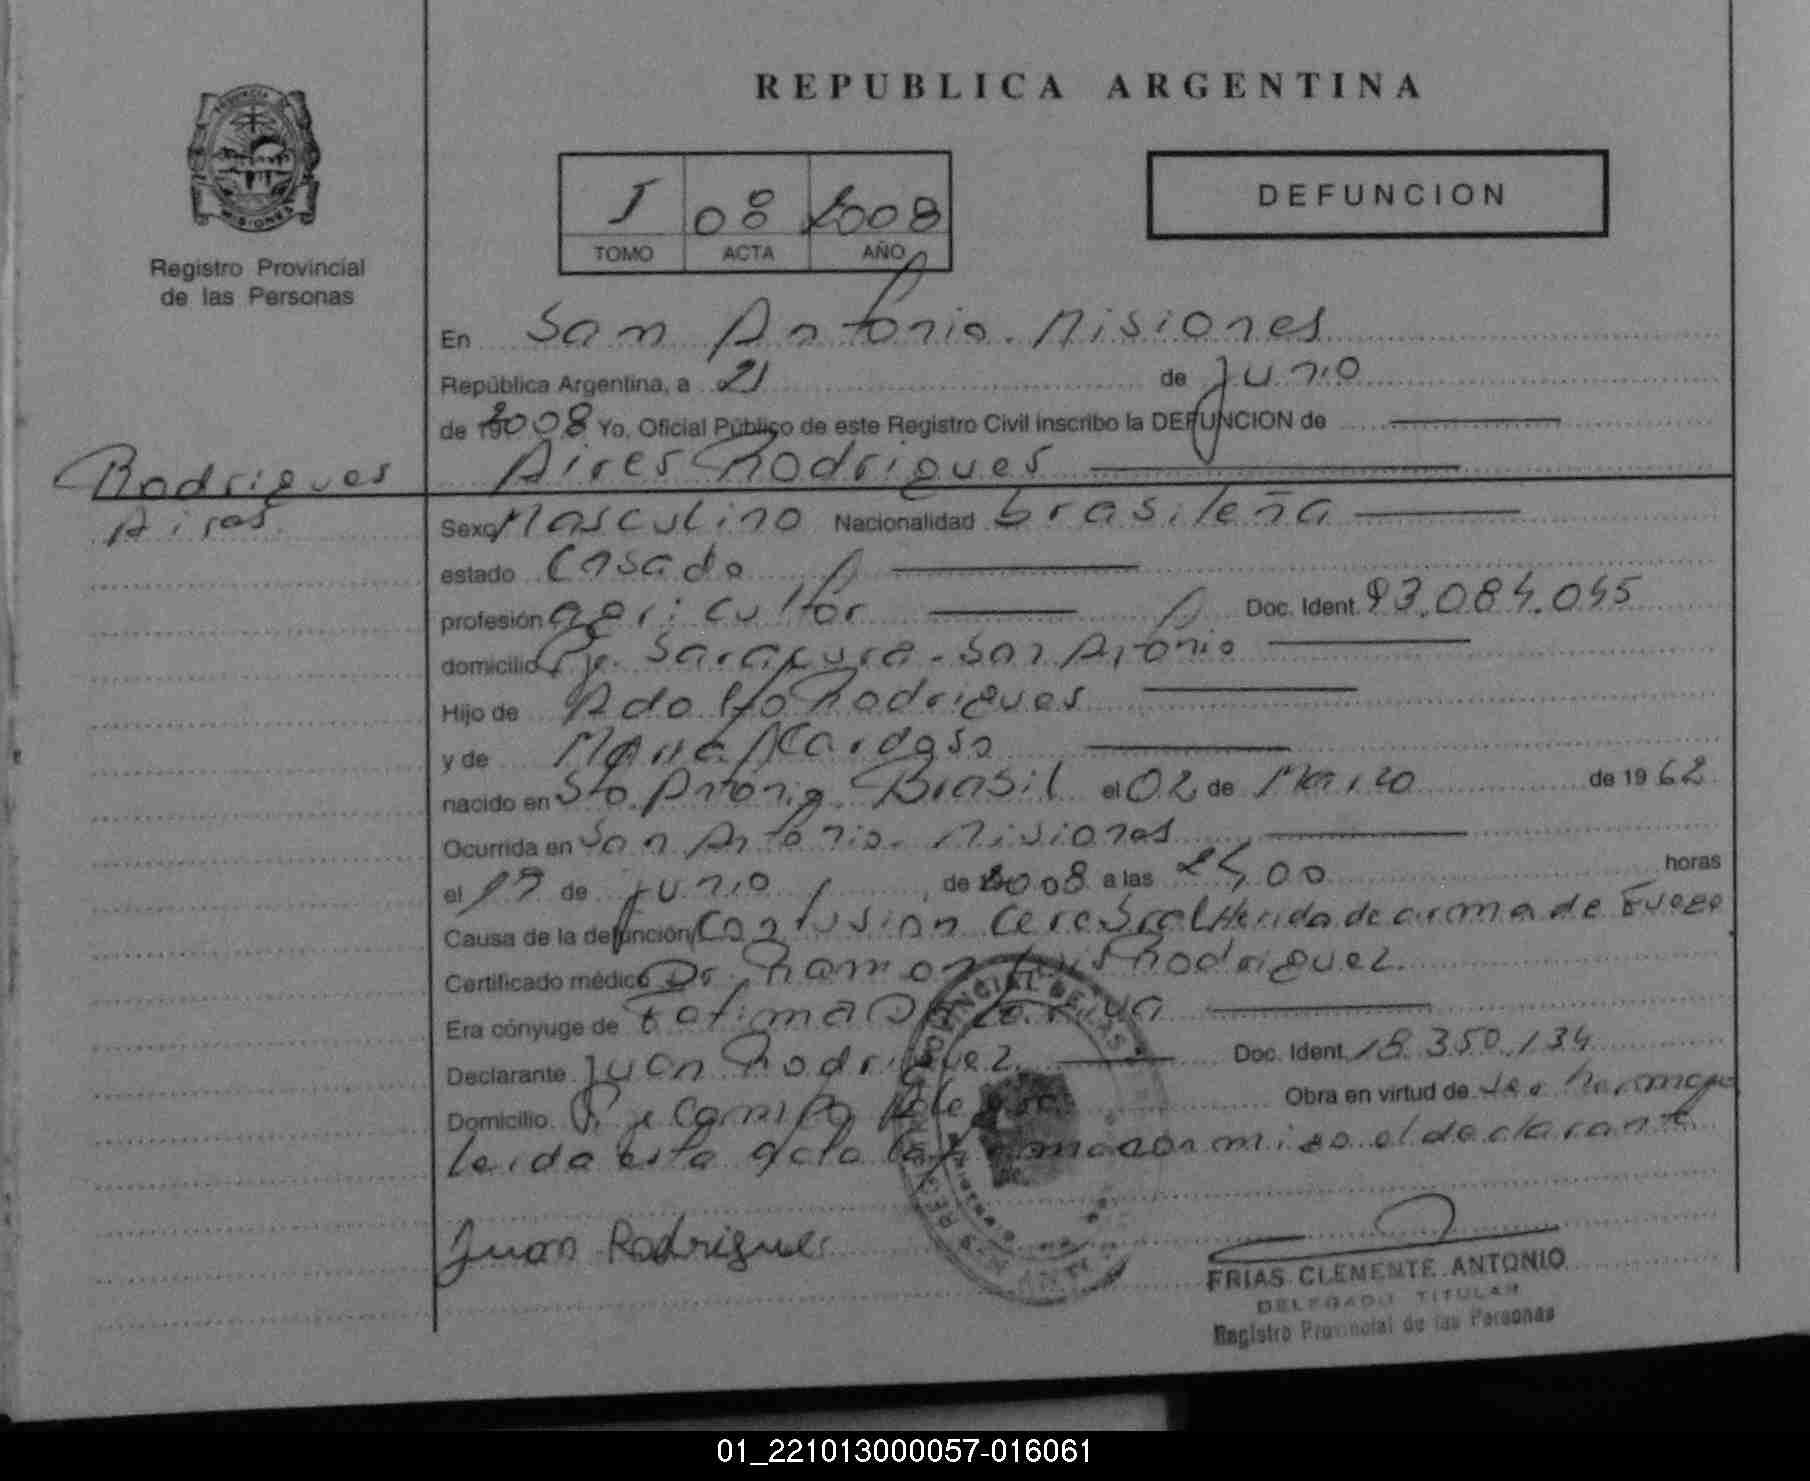 REPUBLICA ARGENTINA
Registro Provincial
de las Personas
I 08 2008
TOMO ACTA AÑO
DEFUNCION
En San Antonio. Misiones
República Argentina, a 21 de Junio
de 2008 Yo, Oficial Público de este Registro Civil inscribo la DEFUNCION de
Aires Rodrigues
Rodrigues
Aires
Sexo Masculino Nacionalidad brasileña
estado Casado
profesión agricultor Doc. Ident. 93.084.045
domicilio Pje. Sarapura. San Antonio
Hijo de Adolfo Rodrigues
y de Maria Cardoso
nacido en Sto. Antonio Brasil el 02 de Marzo de 1962
Ocurrida en San Antonio. Misiones
el 19 de junio de 2008 a las 24,00 horas
Causa de la defunción Contusion Cerebral Herida de arma de Fuego
Certificado médico Dr. Ramon Luis Rodriguez
Era cónyuge de Fatima
Declarante Juan Rodriguez Doc. Ident. 18.350.134
Domicilio Pje Campo Alegre Obra en virtud de ser hermano
leida esta acta la firma conmigo el declarante
Juan Rodriguez
FRIAS CLEMENTE ANTONIO
DELEGADO TITULAR
Registro Provincial de las Personas
01_221013000057-016061